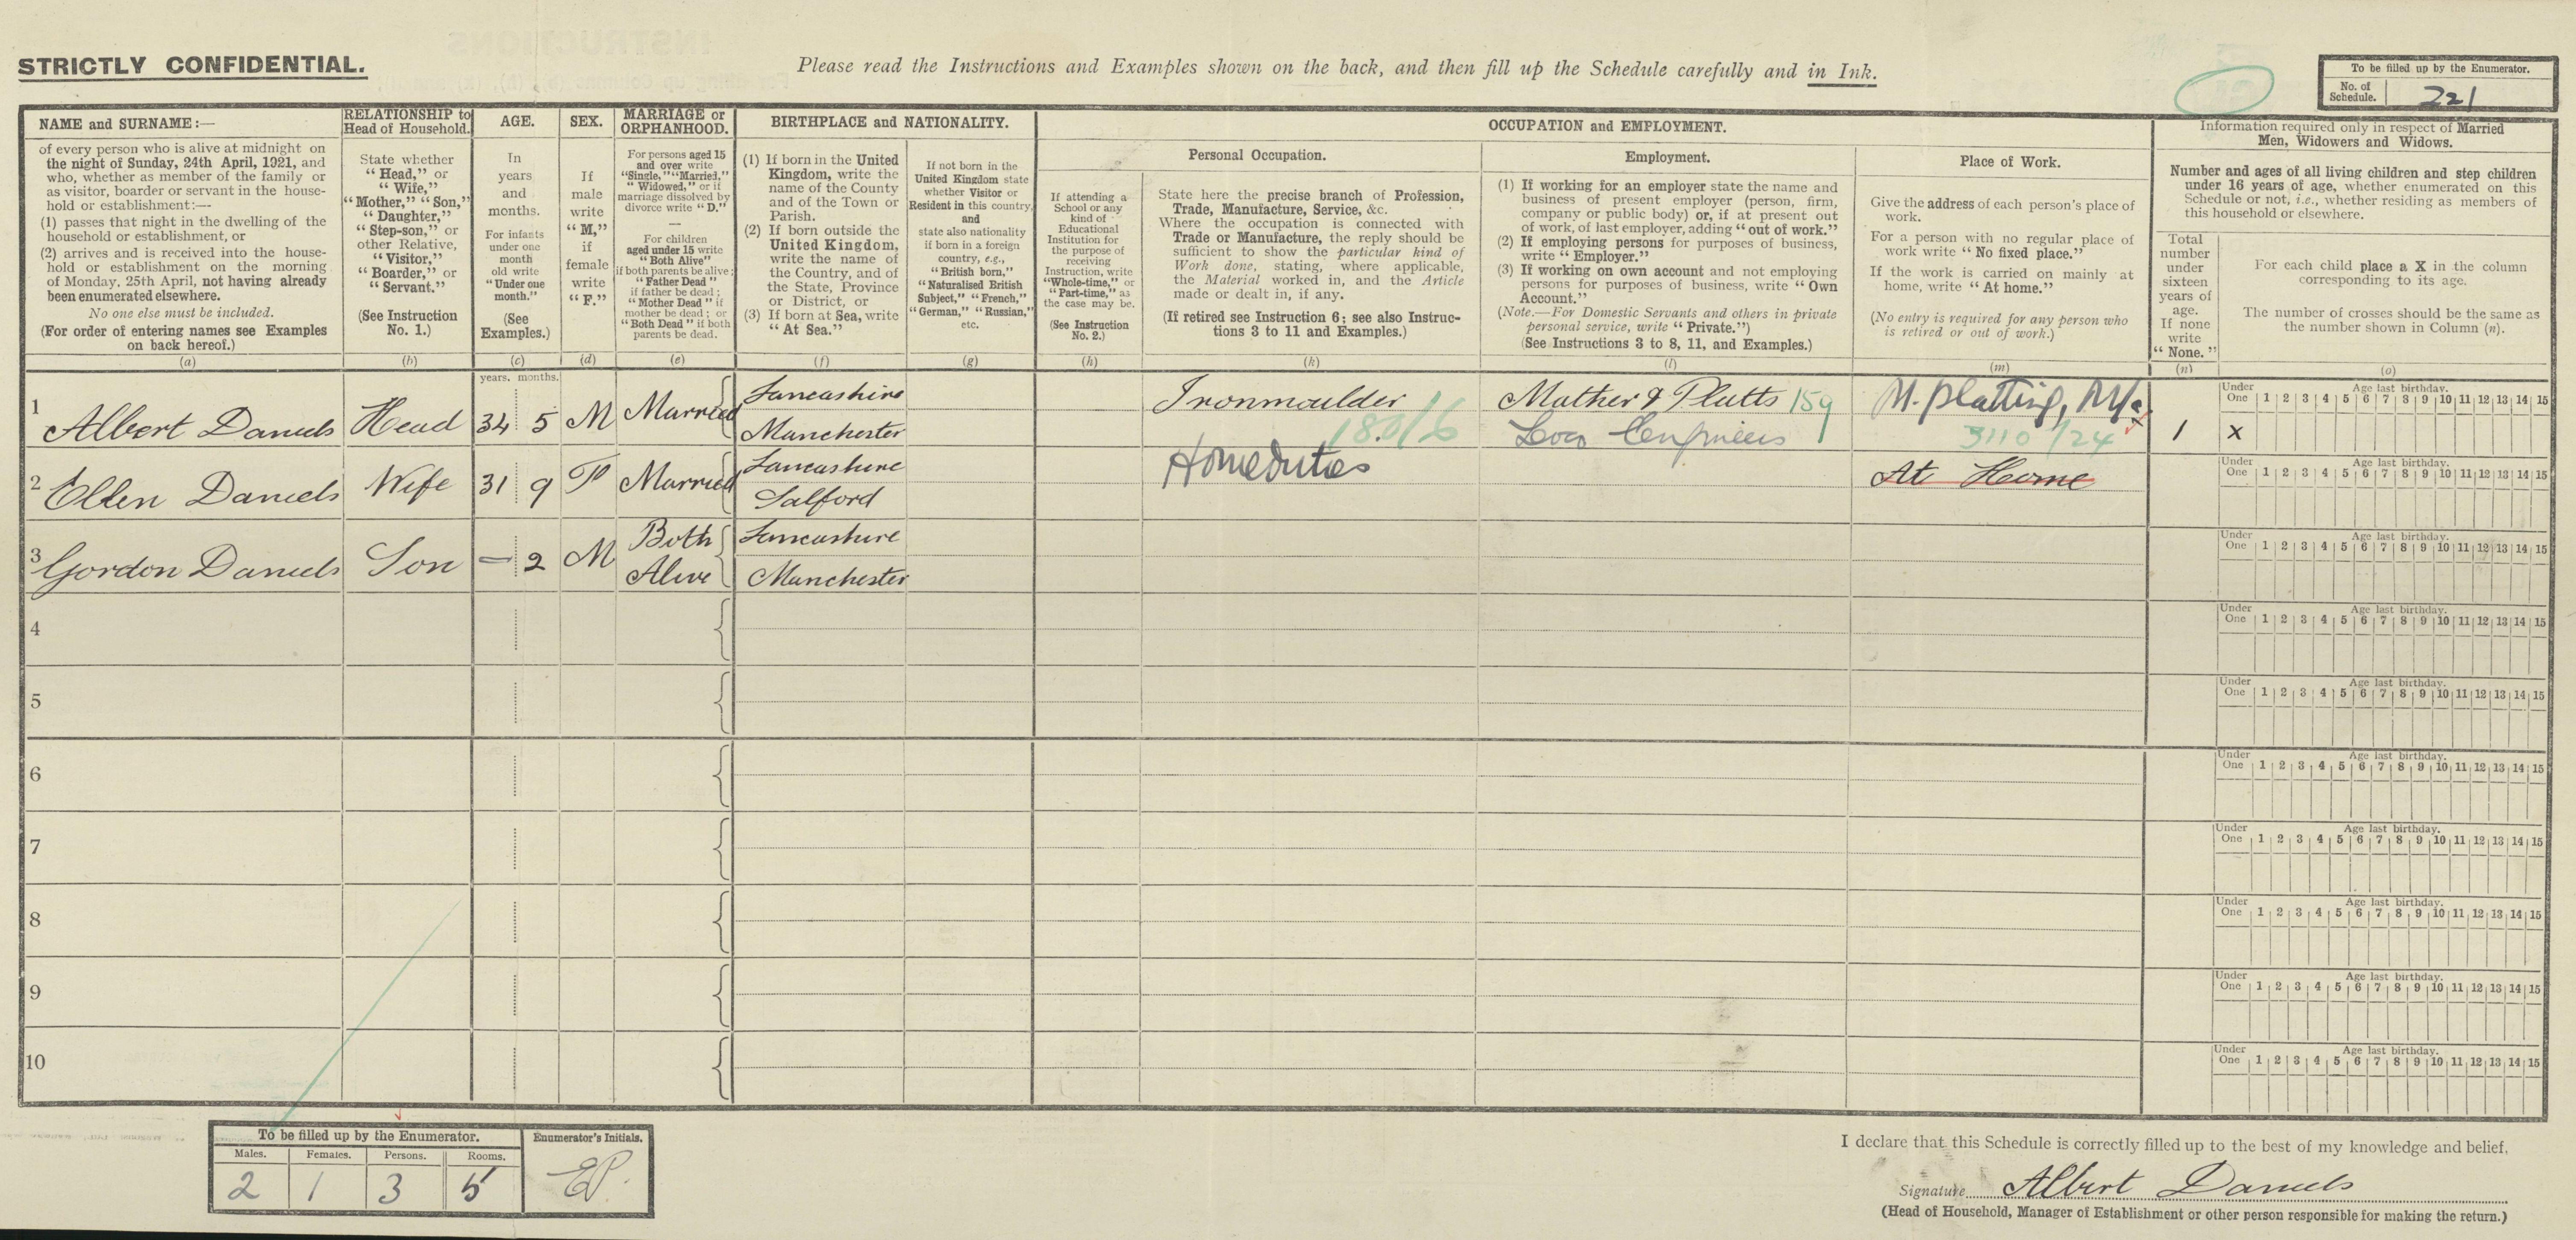 STRICTLY CONFIDENTIAL.
Please read the Instructions and Examples shown on the back, and then fill up the Schedule carefully and in Ink.
To be filled up by the Enumerator.
No. of Schedule. 221
NAME and SURNAME:—
of every person who is alive at midnight on
the night of Sunday, 24th April, 1921, and
who, whether as member of the family or
as visitor, boarder or servant in the house-
hold or establishment:—
(1) passes that night in the dwelling of the
household or establishment, or
(2) arrives and is received into the house-
hold or establishment on the morning
of Monday, 25th April, not having already
been enumerated elsewhere.
No one else must be included.
(For order of entering names see Examples
on back hereof.)
(a)
RELATIONSHIP to
Head of Household.
State whether
"Head," or
"Wife,"
"Mother," "Son,"
"Daughter,"
"Step-son," or
other Relative,
"Visitor,"
"Boarder," or
"Servant."
(See Instruction
No. 1.)
(b)
AGE.
In
years
and
months.
For infants
under one
month
old write
"Under one
month."
(See
Examples.)
(c)
SEX.
If
male
write
"M,"
if
female
write
"F."
(d)
MARRIAGE or
ORPHANHOOD.
For persons aged 15
and over write
"Single," "Married,"
"Widowed," or if
marriage dissolved by
divorce write "D."
—
For children
aged under 15 write
"Both Alive"
if both parents be alive;
"Father Dead"
if father be dead;
"Mother Dead" if
mother be dead; or
"Both Dead" if both
parents be dead.
(e)
BIRTHPLACE and NATIONALITY.
(1) If born in the United
Kingdom, write the
name of the County
and of the Town or
Parish.
(2) If born outside the
United Kingdom,
write the name of
the Country, and of
the State, Province
or District, or
(3) If born at Sea, write
"At Sea."
(f)
If not born in the
United Kingdom state
whether Visitor or
Resident in this country,
and
state also nationality
if born in a foreign
country, e.g.,
"British born,"
"Naturalised British
Subject," "French,"
"German," "Russian,"
etc.
(g)
OCCUPATION and EMPLOYMENT.
If attending a
School or any
kind of
Educational
Institution for
the purpose of
receiving
Instruction, write
"Whole-time," or
"Part-time," as
the case may be.
(See Instruction
No. 2.)
(h)
Personal Occupation.
State here the precise branch of Profession,
Trade, Manufacture, Service, &c.
Where the occupation is connected with
Trade or Manufacture, the reply should be
sufficient to show the particular kind of
Work done, stating, where applicable,
the Material worked in, and the Article
made or dealt in, if any.
(If retired see Instruction 6; see also Instruc-
tions 3 to 11 and Examples.)
(k)
Employment.
(1) If working for an employer state the name and
business of present employer (person, firm,
company or public body) or, if at present out
of work, of last employer, adding "out of work."
(2) If employing persons for purposes of business,
write "Employer."
(3) If working on own account and not employing
persons for purposes of business, write "Own
Account."
(Note.—For Domestic Servants and others in private
personal service, write "Private.")
(See Instructions 3 to 8, 11, and Examples.)
(l)
Place of Work.
Give the address of each person's place of
work.
For a person with no regular place of
work write "No fixed place."
If the work is carried on mainly at
home, write "At home."
(No entry is required for any person who
is retired or out of work.)
(m)
Information required only in respect of Married
Men, Widowers and Widows.
Number and ages of all living children and step children
under 16 years of age, whether enumerated on this
Schedule or not, i.e., whether residing as members of
this household or elsewhere.
Total
number
under
sixteen
years of
age.
If none
write
"None."
(n)
For each child place a X in the column
corresponding to its age.
The number of crosses should be the same as
the number shown in Column (n).
(o)
years. months.
1 Albert Daniels Head 34 5 M Married Lancashire Manchester Ironmoulder 180/6 Mather & Platts 159 Loco Engineers M. Platting, M/c 3110/24 1 X
Under One Age last birthday. 1 2 3 4 5 6 7 8 9 10 11 12 13 14 15
2 Ellen Daniels Wife 31 9 F Married Lancashire Salford Home duties At Home
Under One Age last birthday. 1 2 3 4 5 6 7 8 9 10 11 12 13 14 15
3 Gordon Daniels Son — 2 M Both Alive Lancashire Manchester
Under One Age last birthday. 1 2 3 4 5 6 7 8 9 10 11 12 13 14 15
4 Under One Age last birthday. 1 2 3 4 5 6 7 8 9 10 11 12 13 14 15
5 Under One Age last birthday. 1 2 3 4 5 6 7 8 9 10 11 12 13 14 15
6 Under One Age last birthday. 1 2 3 4 5 6 7 8 9 10 11 12 13 14 15
7 Under One Age last birthday. 1 2 3 4 5 6 7 8 9 10 11 12 13 14 15
8 Under One Age last birthday. 1 2 3 4 5 6 7 8 9 10 11 12 13 14 15
9 Under One Age last birthday. 1 2 3 4 5 6 7 8 9 10 11 12 13 14 15
10 Under One Age last birthday. 1 2 3 4 5 6 7 8 9 10 11 12 13 14 15
To be filled up by the Enumerator.
Males. Females. Persons. Rooms.
2 1 3 5
Enumerator's Initials.
EP.
I declare that this Schedule is correctly filled up to the best of my knowledge and belief.
Signature Albert Daniels
(Head of Household, Manager of Establishment or other person responsible for making the return.)